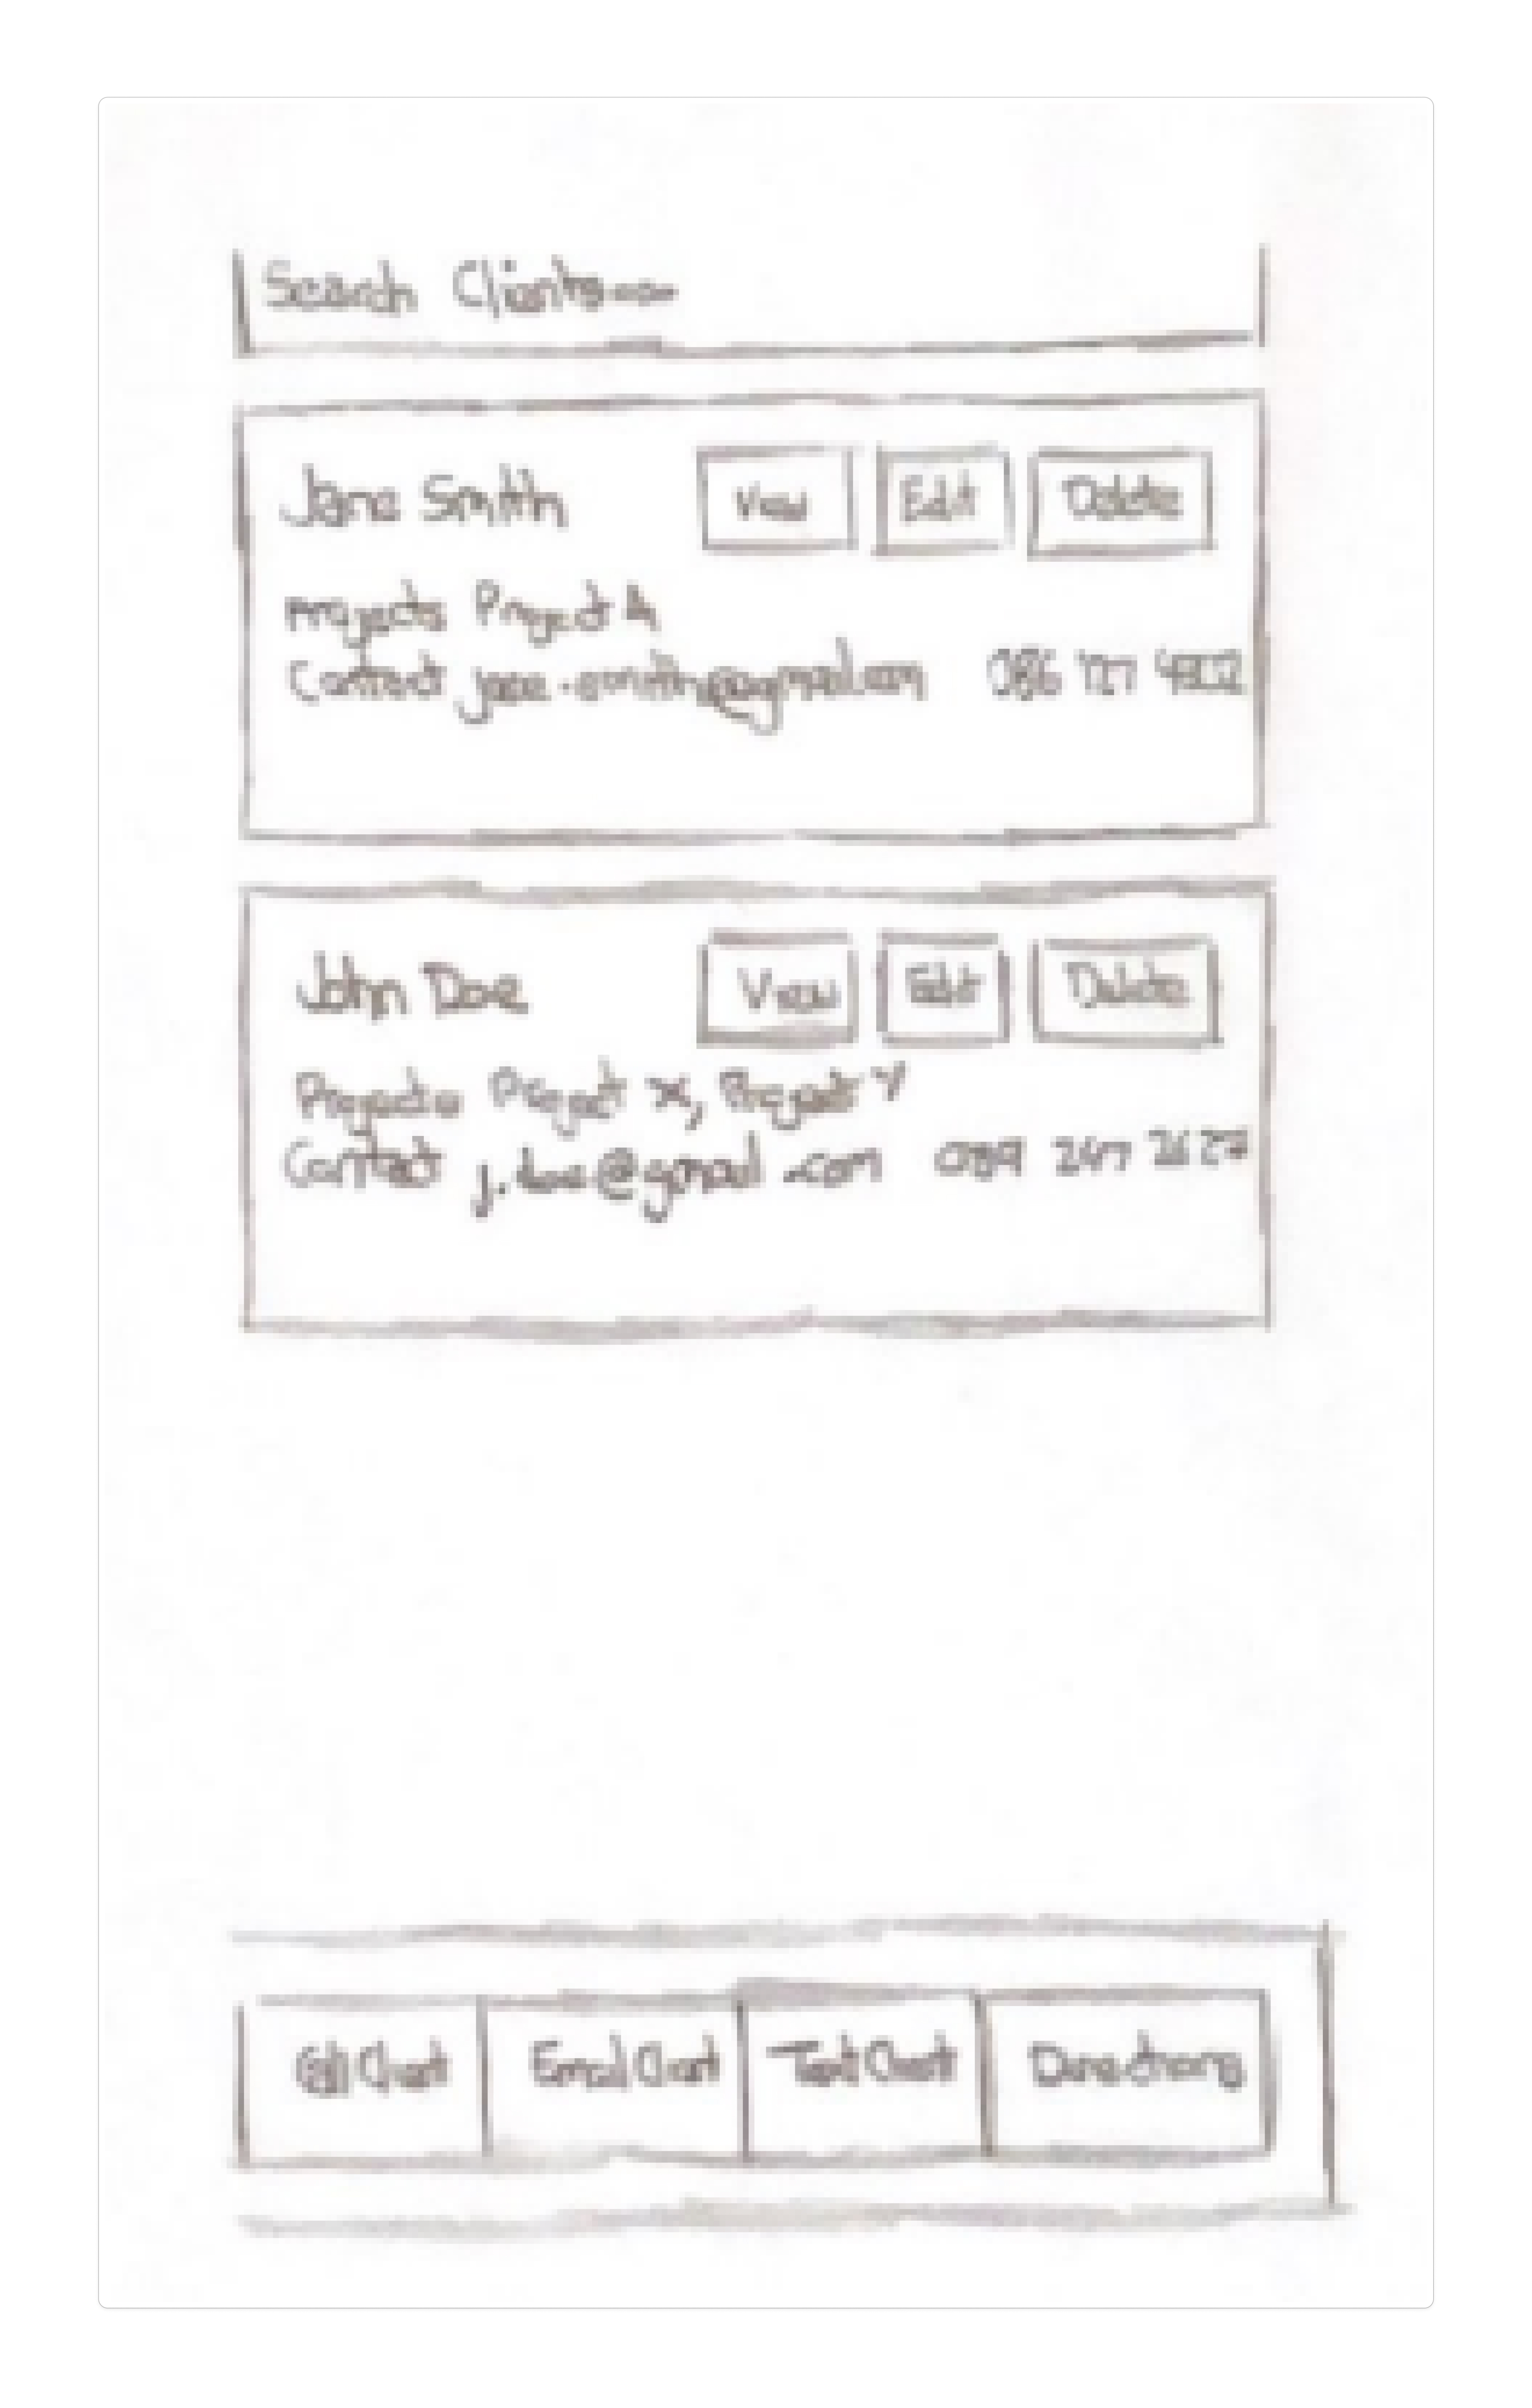 Search Clients....
Jane Smith View Edit Delete
Projects Project A
Contact jane.smith@gmail.com 086 127
John Doe View Edit Delete
Projects Project X, Project Y
Contact j.doe@gmail.com 089 247
Call Client Email Client Text Client Directions